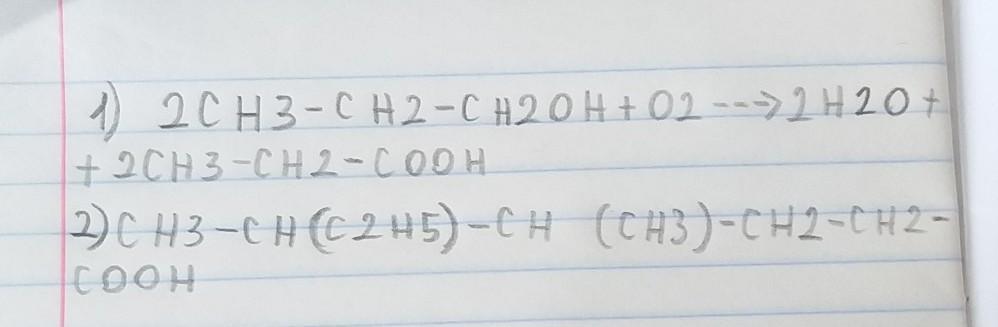 1) 2CH3-CH2-CH2OH+O2--->2H2O+
+2CH3-CH2-COOH
2)CH3-CH(C2H5)-CH (CH3)-CH2-CH2-
COOH